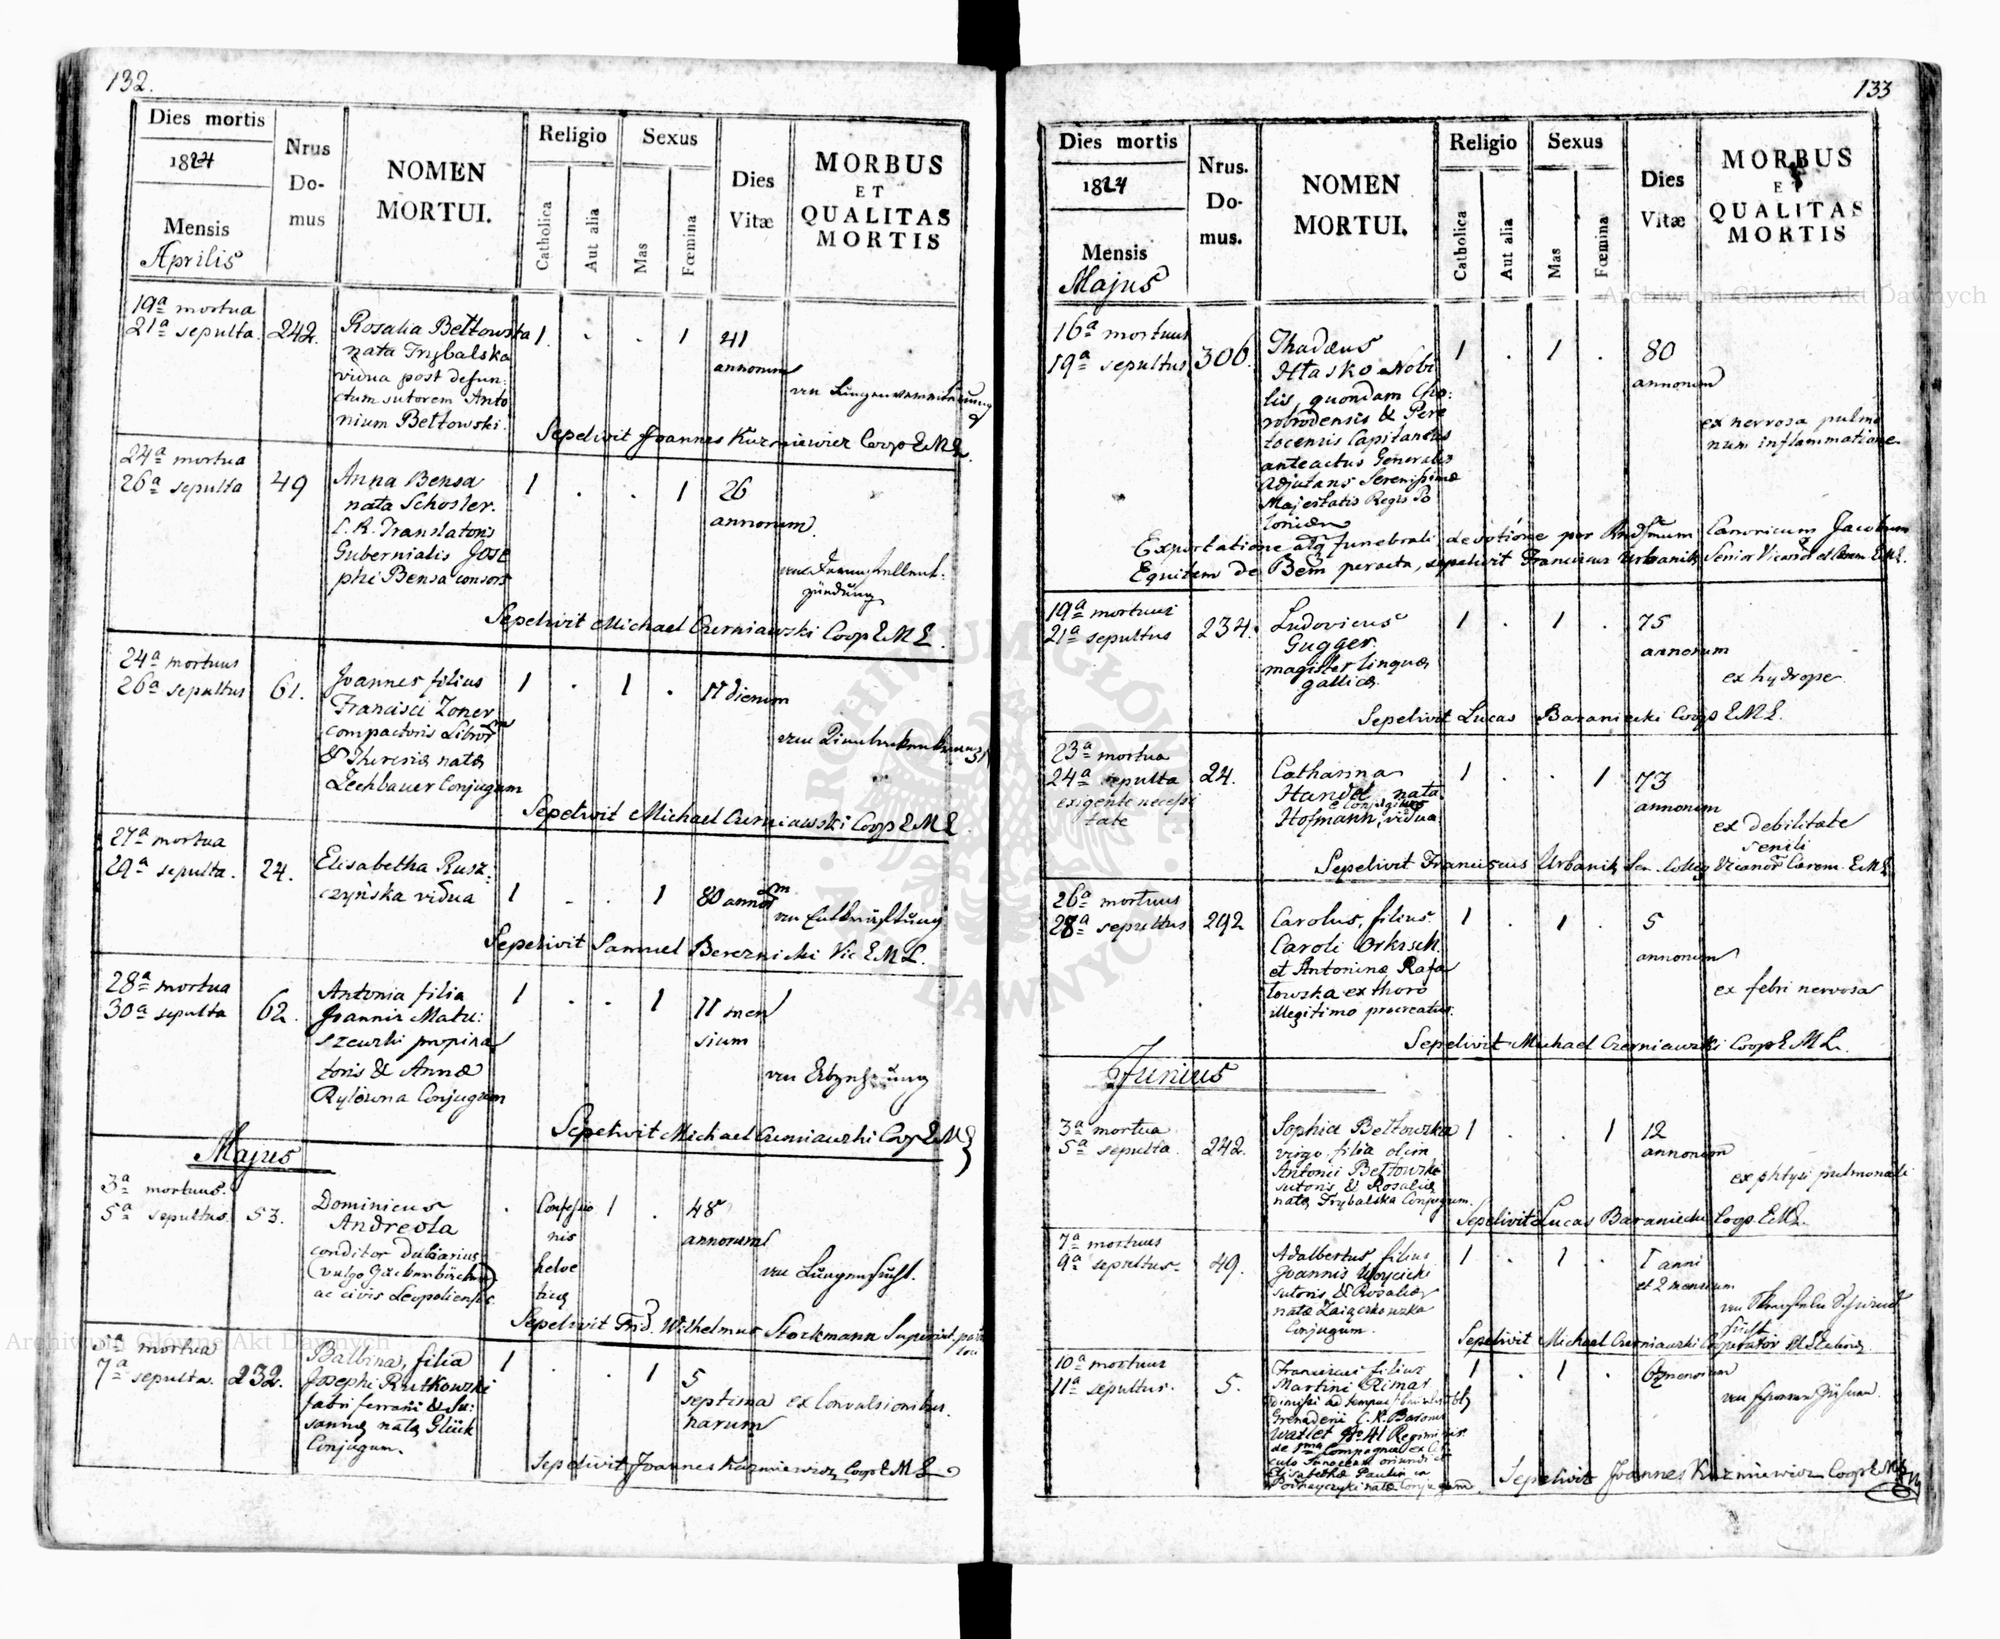 132.
Dies mortis
1824
Mensis
Aprilis
Nrus
Do-
mus
NOMEN
MORTUI.
Religio
Catholica
Aut alia
Sexus
Mas
Fœmina
Dies
Vitæ
MORBUS
ET
QUALITAS
MORTIS
19ª mortua
21ª sepulta
242.
Rosalia Bełtowska
nata Trybalska
vidua post defun-
ctum sutorem Anto
nium Bełtowski.
1
.
.
1
41
annorum
von
Sepelivit Joannes Kuzmiewicz Coop E.M.L.
24ª mortua
26ª sepulta
49
Anna Bensa
nata Schosler.
C. R. Translatoris
Gubernialis Jose
phi Bensa consors
1
.
.
1
26
annorum.
zündung
Sepelivit Michael Czerniawski Coop E M L.
24ª mortuus
26ª sepultus
61.
Joannes filius
Francisci Zoner
compactoris Libror
& Theresiæ natæ
Zechbauer Conjugum
1
.
1
.
17 dierum
Sepelivit Michael Czerniawski Coop E M L
27ª mortua
29ª sepulta.
24.
Elisabetha Rusz:
czyńska vidua
1
.
.
1
80 annorm
von Entkräftung
Sepelivit Samuel Bereznicki Vic E M L.
28ª mortua
30ª sepulta
62.
Antonia filia
Joannis Matu:
szewski propina
toris & Annæ
Rylowna Conjugum
1
.
.
1
11 men
sium
von Abzehrung
Sepelivit Michael Czerniawski Coop E M L
Majus
3ª mortuus.
5ª sepultus.
53.
Dominicus
Andreola
conditor dulciarius
(vulgo Zuckerbäcker)
ac civis Leopoliensis.
.
Confessio
nis
helve
ticæ
1
.
48
annorum
von Lungensucht.
Sepelivit Frid. Wilhelmus Stockmann Superint.
5ª mortua
7ª sepulta.
232.
Balbina, filia
Josephi Rutkowski
fabri ferrarii & Su:
sannæ natæ Glück
Conjugum.
1
.
.
1
5
septima
narum
ex Convulsionibus.
Sepelivit Joannes Kuzmiewicz Coop E M L
133
Dies mortis
1824
Mensis
Majus
Nrus.
Do-
mus.
NOMEN
MORTUI.
Religio
Catholica
Aut alia
Sexus
Mas
Fœmina
Dies
Vitæ
MORBUS
ET
QUALITAS
MORTIS
16ª mortuus
19ª sepultus
306.
Thadæus
Hłasko Nobi
lis, quondam Cho:
robrodensis & Pere
locensis Capitaneus
anteactus Generalis
Adjutans Serenissimæ
Majestatis Regis Po
loniæ
1
.
1
.
80
annorum
ex nervosa pulmo
num inflammatione
Exportatione atq funebrali devotione per Rndssmum Canonicum Jacobum
Equitem de Bem peracta, sepelivit Franciscus Urbanik Senior Vicarior E.M.L.
19ª mortuus
21ª sepultus
234.
Ludovicus
Gugger
magister linguæ
gallicæ.
1
.
1
.
75
annorum
ex hydrope
Sepelivit Lucas Baraniecki Coop E.M.L.
23ª mortua
24ª sepulta
exigente necessi
tate
24.
Catharina
Handel nata
Hofmann, vidua
1
.
.
1
73
annorum
ex debilitate
senili
Sepelivit Franciscus Urbanik Sen. Colleg Vicarior Carem. E.M.L.
26ª mortuus
28ª sepultus
292
Carolus, filius
Caroli Orkisch
et Antoninæ Rafa
łowska ex thoro
illegitimo procreatus.
1
.
1
.
5
annorum
ex febri nervosa
Sepelivit Michael Czerniawski Coop E M L.
Junius
3ª mortua
5ª sepulta.
242.
Sophia Bełtowska
virgo filia olim
Antonii Bełtowski
sutoris & Rosaliæ
natæ Trybalska Conjugum.
1
.
.
1
12
annorum
ex phtysi pulmonali
Sepelivit Lucas Baraniecki Coop. E.M.L.
7ª mortuus
9ª sepultus.
49.
Adalbertus filius
Joannis Woycicki
sutoris & Rosaliæ
natæ Zaiączkowska
Conjugum.
1
.
1
.
1 anni
et 2 mensium
Sepelivit Michael Czerniawski Cooperator
10ª mortuus
11ª sepultus.
5.
Franciscus filius
Martini Rimar
dimissi ad tempus
Grenaderii C. K. Baronis
Watlet No 41 Regiminis
de 1ma Compagnia ex Cir
culo oriundi et
Elisabethæ Paulin
natæ Conjugum.
1
.
1
.
mensium
Sepelivit Joannes Kuzmiewicz Coop E M L
Archiwum Główne Akt Dawnych
Archiwum Główne Akt Dawnych
ARCHIWUM GŁÓWNE AKT DAWNYCH